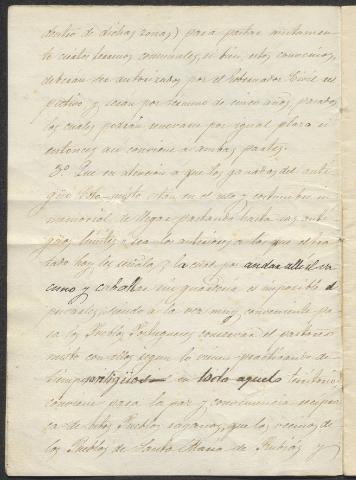 dentro de dichas zonas) para pastar mutuamen-
te ciertos terrenos comunales, si bien, estos convenios,
deberan ser autorizados por el Gobernador Civil res
pectivo, y seran por termino de cinco años, pasados
los cuales podrán renovarse por igual plazo si
entonces asi conviene a ambas partes.
3º Que en atención a que los ganados del anti-
güo Coto-mixto están en el uso y costumbre in-
memorial de llegar pastando hasta sus anti-
güos límites, o sea los anteriores a los que el tra-
tado hoy les señala, y la cual por andar alli el va
cuno y caballar sin guarderia es imposible
privarles, siendo a la vez muy conveniente pa-
ra los Pueblos Portugueses conservar el pastoreo
mixto con ellos segun lo vienen practicando de
tiempos antigüos en todo aquel territorio
conviene para la paz y convivencia recipro
ca de estos Pueblos rayanos, que los vecinos de
los Pueblos de Santa Maria de Rubiás y